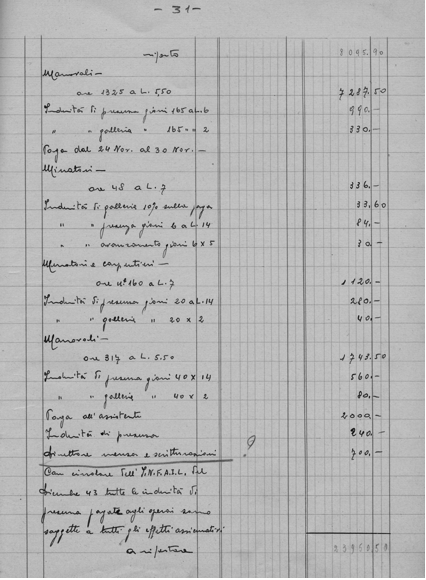 - 31 -
riporto 8095.90
Manovali -
ore 1325 a L. 5.50 7287.50
Indennità di presenza giorni 165 a L. 6 990.-
" " galleria " 165 " 2 330.-
Paga dal 24 Nov. al 30 Nov. -
Minatori -
ore 48 a L. 7 336.-
Indennità di galleria 10% sulla paga 33,60
" " presenza giorni 6 a L. 14 84.-
" " avanzamento giorni 6 x 5 30.-
Minatori e carpentieri -
ore N° 160 a L. 7 1120.-
Indennità di presenza giorni 20 a L. 14 280.-
" " galleria " 20 x 2 40.-
Manovali -
ore 317 a L. 5.50 1743.50
Indennità di presenza giorni 40 x 14 560.-
" " galleria " 40 x 2 80.-
Paga all'assistente 2000.-
Indennità di presenza 240.-
Direttore mensa e scritturazioni ? 700.-
Con circolare dell'I.N.F.A.I.L. del
Dicembre 43 tutte le indennità di
presenza pagate agli operai sono
soggette a tutti gli effetti assicurativi
a riportare